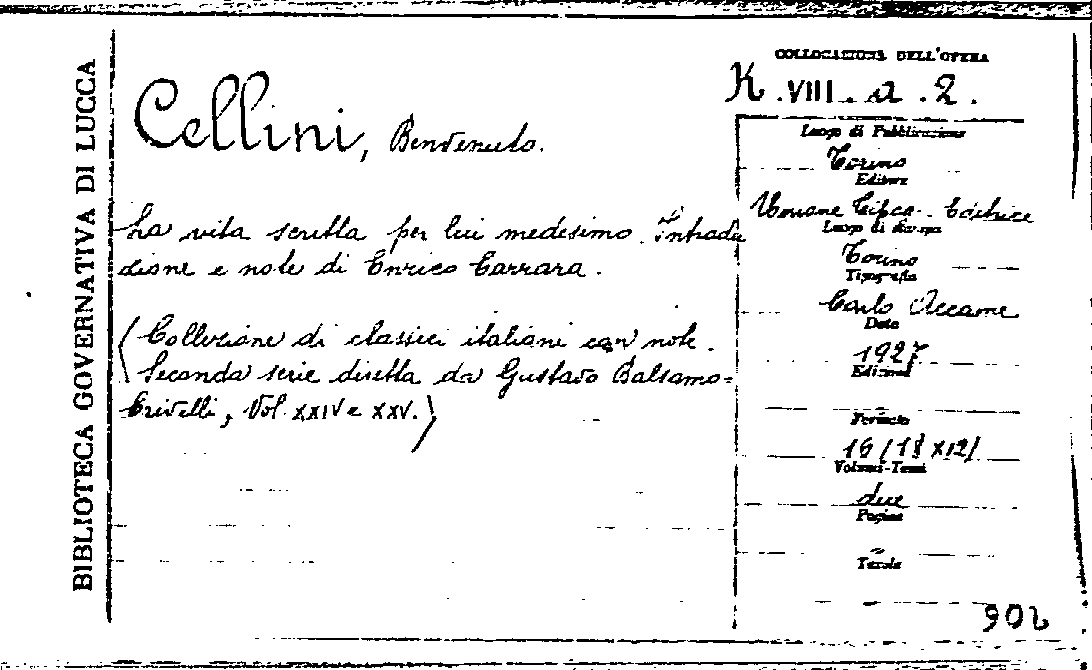 BIBLIOTECA GOVERNATIVA DI LUCCA
Cellini, Benvenuto.
La vita scritta per lui medesimo. Introdu
zione e note di Enrico Carrara.
(Collezione di classici italiani con note.
Seconda serie diretta da Gustavo Balsamo=
Crivelli, Vol. XXIV e XXV.)
COLLOCAZIONE DELL'OPERA
K.VIII.a.2.
Luogo di Pubblicazione
Torino
Editore
Unione Tipog. Editrice
Luogo di stampa
Torino
Tipografia
Carlo Accame
Data
1927
Edizione
Formato
16/18x12/
Volumi-Tomi
due
Pagine
Tavole
902